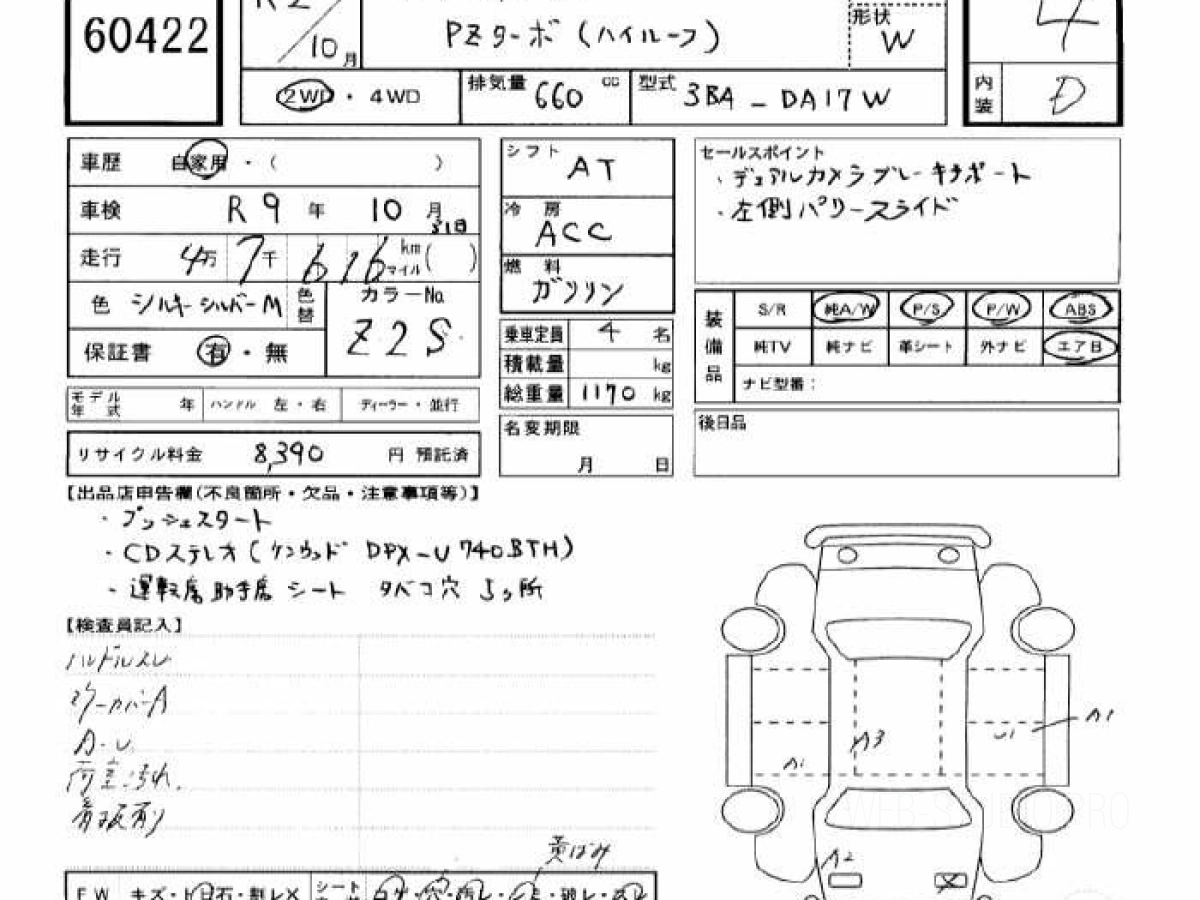 60422
R2
10月
PZターボ(ハイルーフ)
形状
W
4
2WD・4WD
排気量 660 cc
型式 3BA-DA17W
内装 D
車歴 自家用・( )
車検 R9年10月31日
走行 4万7千616km マイル( )
色 シルキーシルバーM
色替
カラーNo
Z2S
保証書 有・無
モデル年式 年 ハンドル 左・右 ディーラー・並行
リサイクル料金 8,390 円 預託済
シフト AT
冷房 ACC
燃料 ガソリン
乗車定員 4 名
積載量 kg
総重量 1170 kg
名変期限
月 日
セールスポイント
・デュアルカメラブレーキサポート
・左側パワースライド
装備品
S/R 純A/W P/S P/W ABS
純TV 純ナビ 革シート 外ナビ エアB
ナビ型番:
後日品
【出品店申告欄(不良箇所・欠品・注意事項等)】
・プッシュスタート
・CDステレオ(ケンウッド DPX-U740BTH)
・運転席助手席シート タバコ穴5ヶ所
【検査員記入】
ハンドルスレ
A・U
荷室汚れ
黄ばみ
A1
U1
A3
A1
A2
FW キズ・飛石・割レX シート コゲ・穴・汚レ・シミ・破レ・スレ